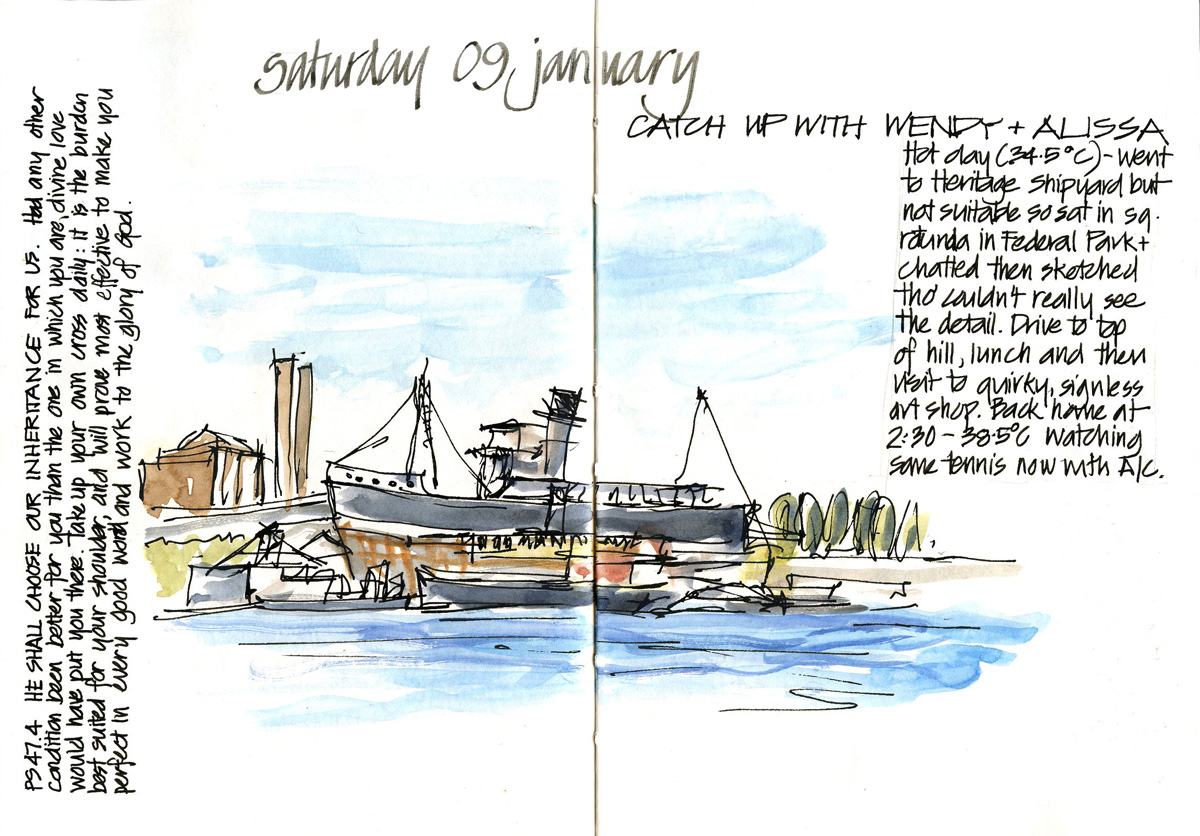 saturday 09 january
CATCH UP WITH WENDY + ALISSA
Hot day (34.5°C) - went
to Heritage Shipyard but
not suitable so sat in sq.
rotunda in Federal Park +
chatted then sketched
tho' couldn't really see
the detail. Drive to top
of hill, lunch and then
visit to quirky, signless
art shop. Back home at
2:30 - 38.5°C watching
some tennis now with A/c.
PS 47.4 HE SHALL CHOOSE OUR INHERITANCE FOR US. Had any other
condition been better for you than the one in which you are, divine love
would have put you there. Take up your own cross daily: it is the burden
best suited for your shoulder, and will prove most effective to make you
perfect in every good word and work to the glory of God.